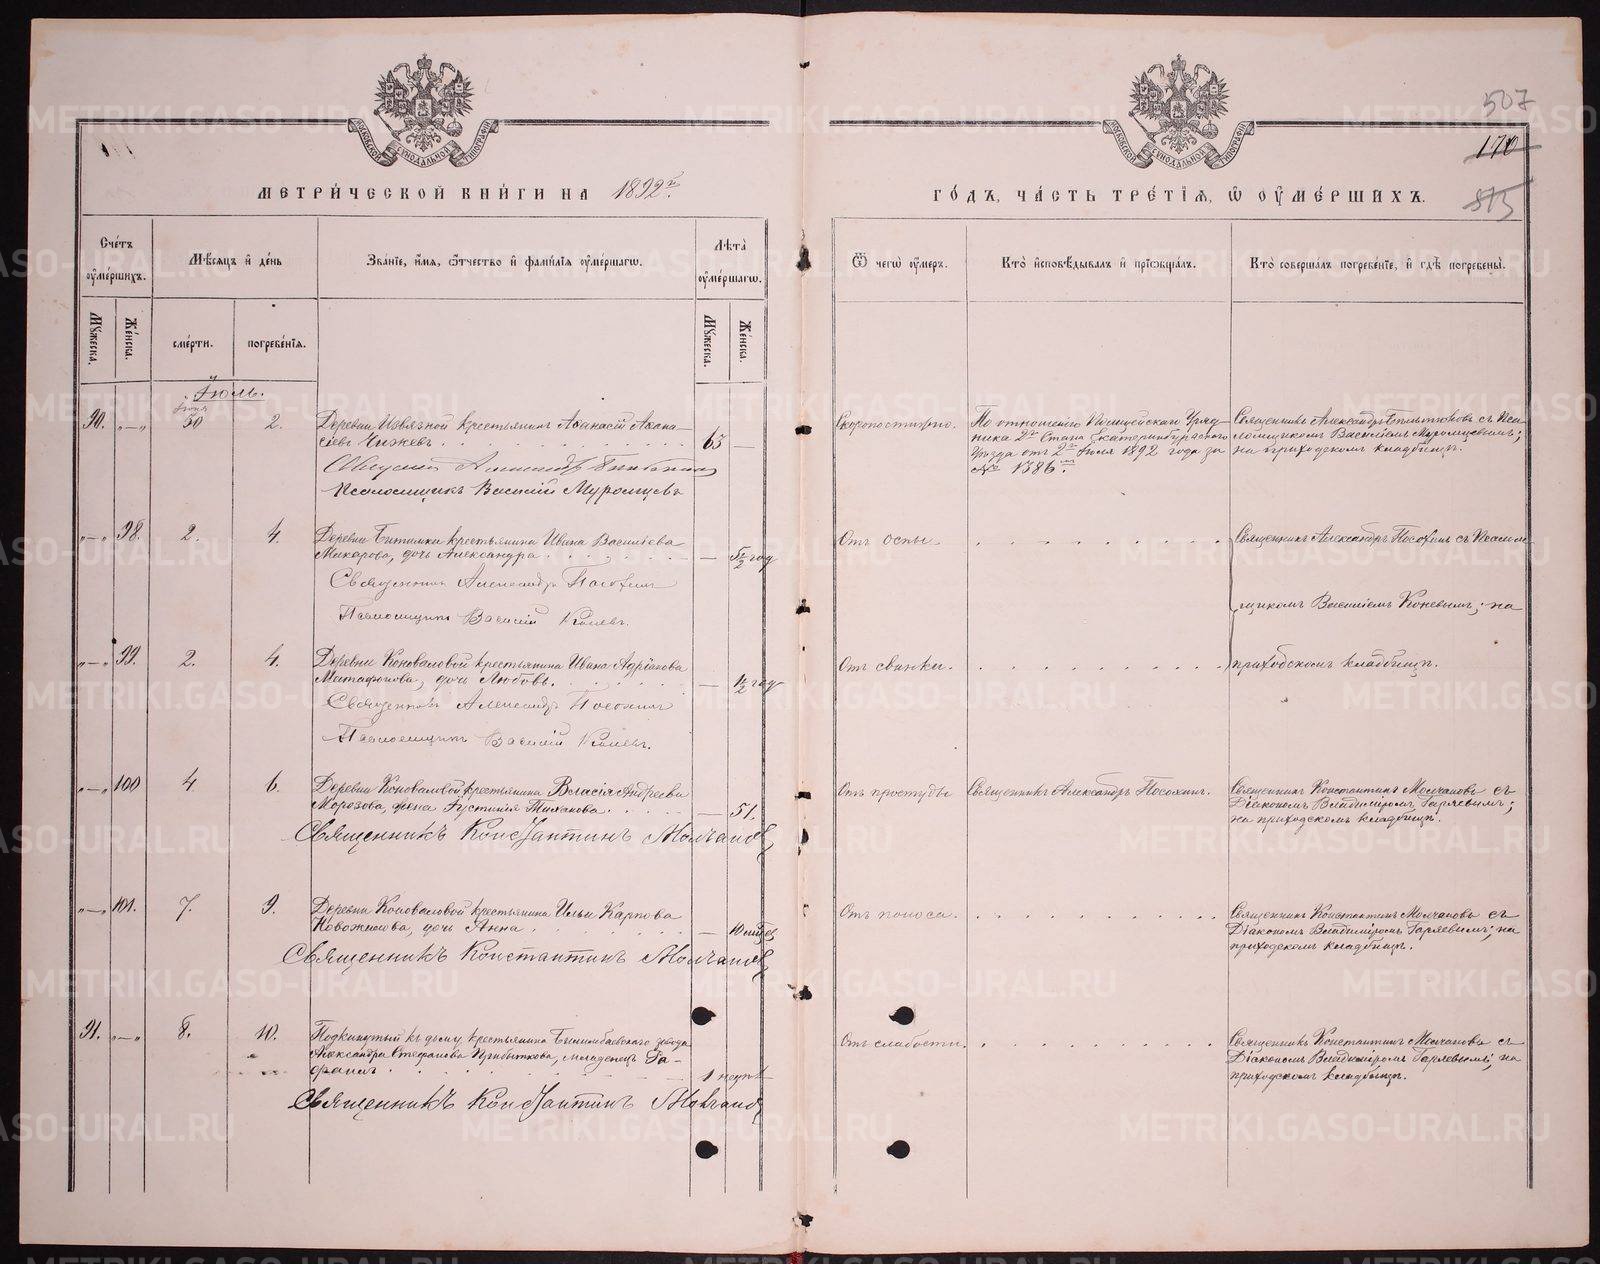 507
170
815
МОСКОВСКОЙ СУНОДАЛЬНОЙ ТИПОГРАФІИ
МОСКОВСКОЙ СУНОДАЛЬНОЙ ТИПОГРАФІИ
МЕТРИ́ЧЕСКОЙ КНИ́ГИ НА 1892й
ГО́ДЪ, ЧА́СТЬ ТРЕ́ТІѦ, Ѽ ОУ҆МЕ́РШИХЪ.
Сче́тъ оу҆ме́ршихъ.
Мѣ́сяцъ и҆ де́нь
Зва́ніе, и҆́мя, ѻ҆́тчество и҆ фами́лія оу҆ме́ршагѡ.
Лѣ́та оу҆ме́ршагѡ.
Ѿ чегѡ̀ оу҆́меръ.
Кто̀ и҆сповѣ́дывалъ и҆ прїѡбща́лъ.
Кто̀ соверша́лъ погребе́нїе, и҆ гдѣ̀ погребены̀.
Мꙋ́жеска.
Же́нска.
сме́рти.
погребе́нїѧ.
Мꙋ́жеска.
Же́нска.
Іюль.
Іюня
90. „—„ 30 2. Деревни Извѧзной крестьянинъ Аѳанасій Аѳана-
сіевъ Чижевъ 65
Священникъ Александръ
Псаломщикъ Василій Муромцевъ
Скоропостижно.
По отношенію Полицейскаго Уряд-
ника 2го Стана Екатеринбургскаго
Уѣзда отъ 2го Іюля 1892 года за
№ 1386м.
Священникъ Александръ съ Пса-
ломщикомъ Василіемъ Муромцевымъ;
на приходскомъ кладбищѣ.
„—„ 98. 2. 4. Деревни Битимки крестьянина Ивана Василіева
Макарова, дочь Александра — ½ год
Священникъ Александръ Посохинъ
Псаломщикъ Василій Коневъ.
Отъ оспы.
Священникъ Александръ Посохинъ съ Псалом-
щикомъ Василіемъ Коневымъ; на
приходскомъ кладбищѣ.
„—„ 99. 2. 4. Деревни Коноваловой крестьянина Ивана Адріанова
Матафонова, дочь Любовь. — 1½ год
Священникъ Александръ Посохинъ
Псаломщикъ Василій Коневъ.
Отъ свинки.
„—„ 100 4 6. Деревни Коноваловой крестьянина Власія Андреева
Морозова, жена Іустинія — 51.
Священникъ Константинъ Молчановъ
Отъ простуды
Священникъ Александръ Посохинъ.
Священникъ Константинъ Молчановъ съ
Діакономъ Владиміромъ Гаряевымъ;
на приходскомъ кладбищѣ.
„—„ 101. 7. 9. Деревни Коноваловой крестьянина Ильи Карпова
Новожилова, дочь Анна — 10 мѣсяц
Священникъ Константинъ Молчановъ
Отъ поноса.
Священникъ Константинъ Молчановъ съ
Діакономъ Владиміромъ Гаряевымъ; на
приходскомъ кладбищѣ.
91. „—„ 8. 10. Подкинутый къ дому крестьянина Билимбаевскаго завода
Александра Стефанова Прибыткова, младенецъ Га-
фаилъ 1 недѣл
Священникъ Константинъ Молчановъ
Отъ слабости.
Священникъ Константинъ Молчановъ съ
Діакономъ Владиміромъ Гаряевымъ; на
приходскомъ кладбищѣ.
METRIKI.GASO-URAL.RU